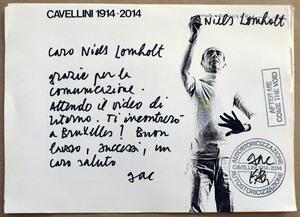 CAVELLINI 1914-2014
Niels Lomholt
caro Niels Lomholt
grazie per la
comunicazione.
Attendo il video di
ritorno. Ti incontrerò
a Bruxelles? Buon
lavoro, successi, un
caro saluto
gac
AFTER ME
COME THE VOID
AUTOSTORICIZZAZIONE
gac
CAVELLINI 1914-2014
AUTOSTORICIZZAZIONE